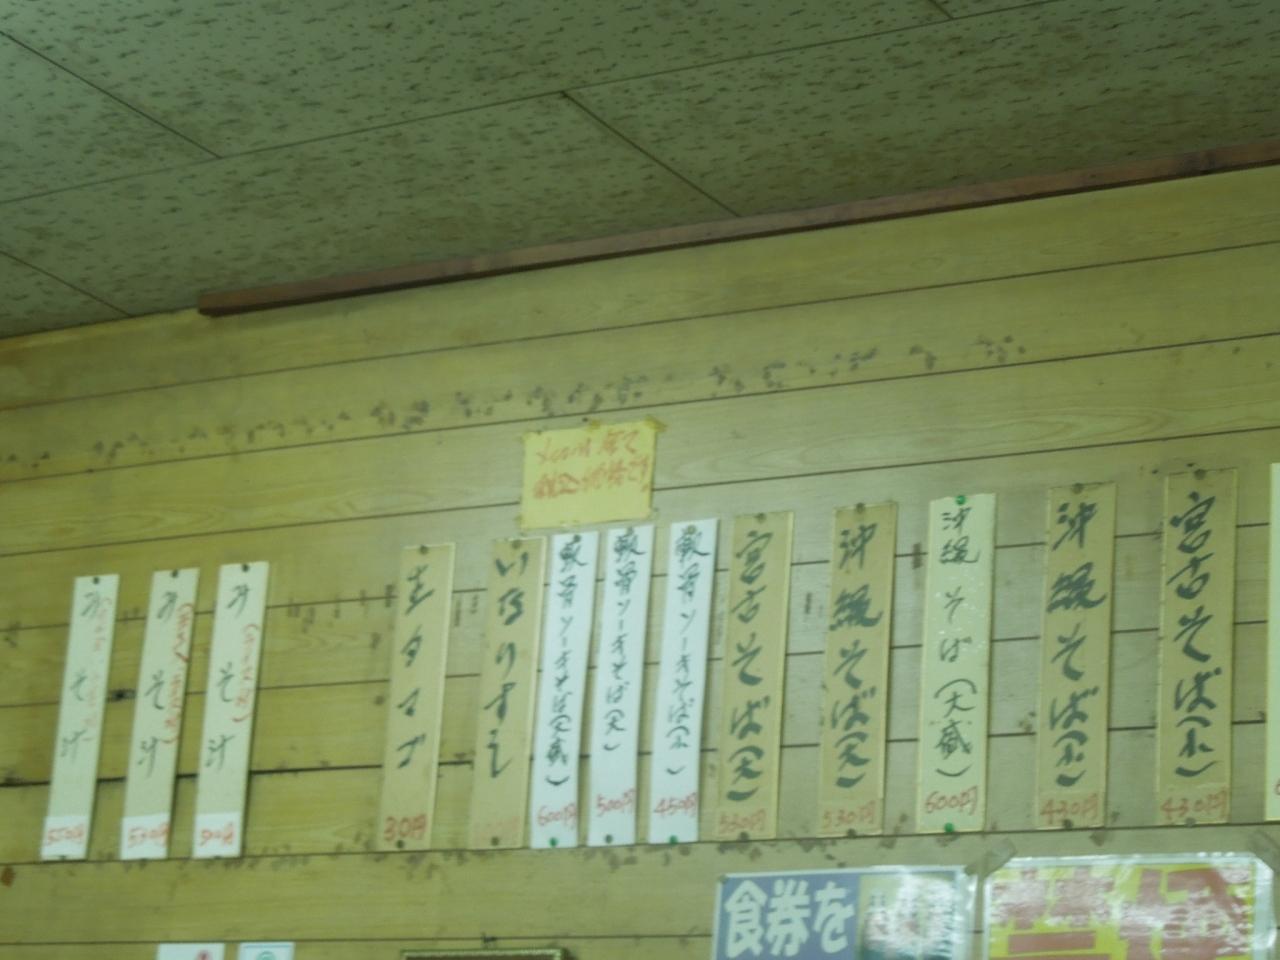 宮古そば(小)
430円
沖縄そば(小)
430円
沖縄そば(大盛)
600円
沖縄そば(大)
530円
宮古そば(大)
530円
軟骨ソーキそば(小)
450円
軟骨ソーキそば(大)
500円
軟骨ソーキそば(大盛)
600円
いなりすし
生タマゴ
30円
みそ汁
みそ汁
550円
みそ汁
550円
食券を